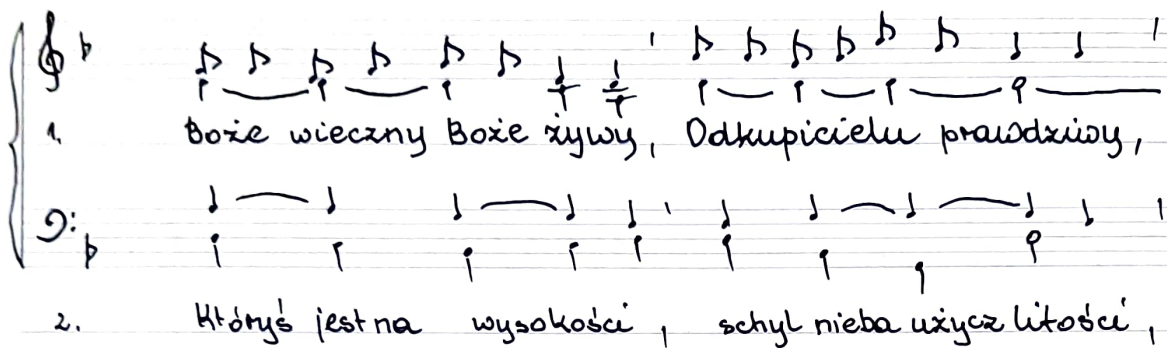 1. Boże wieczny Boże żywy, Odkupicielu prawdziwy,
2. Któryś jest na wysokości, schyl nieba użycz litości,